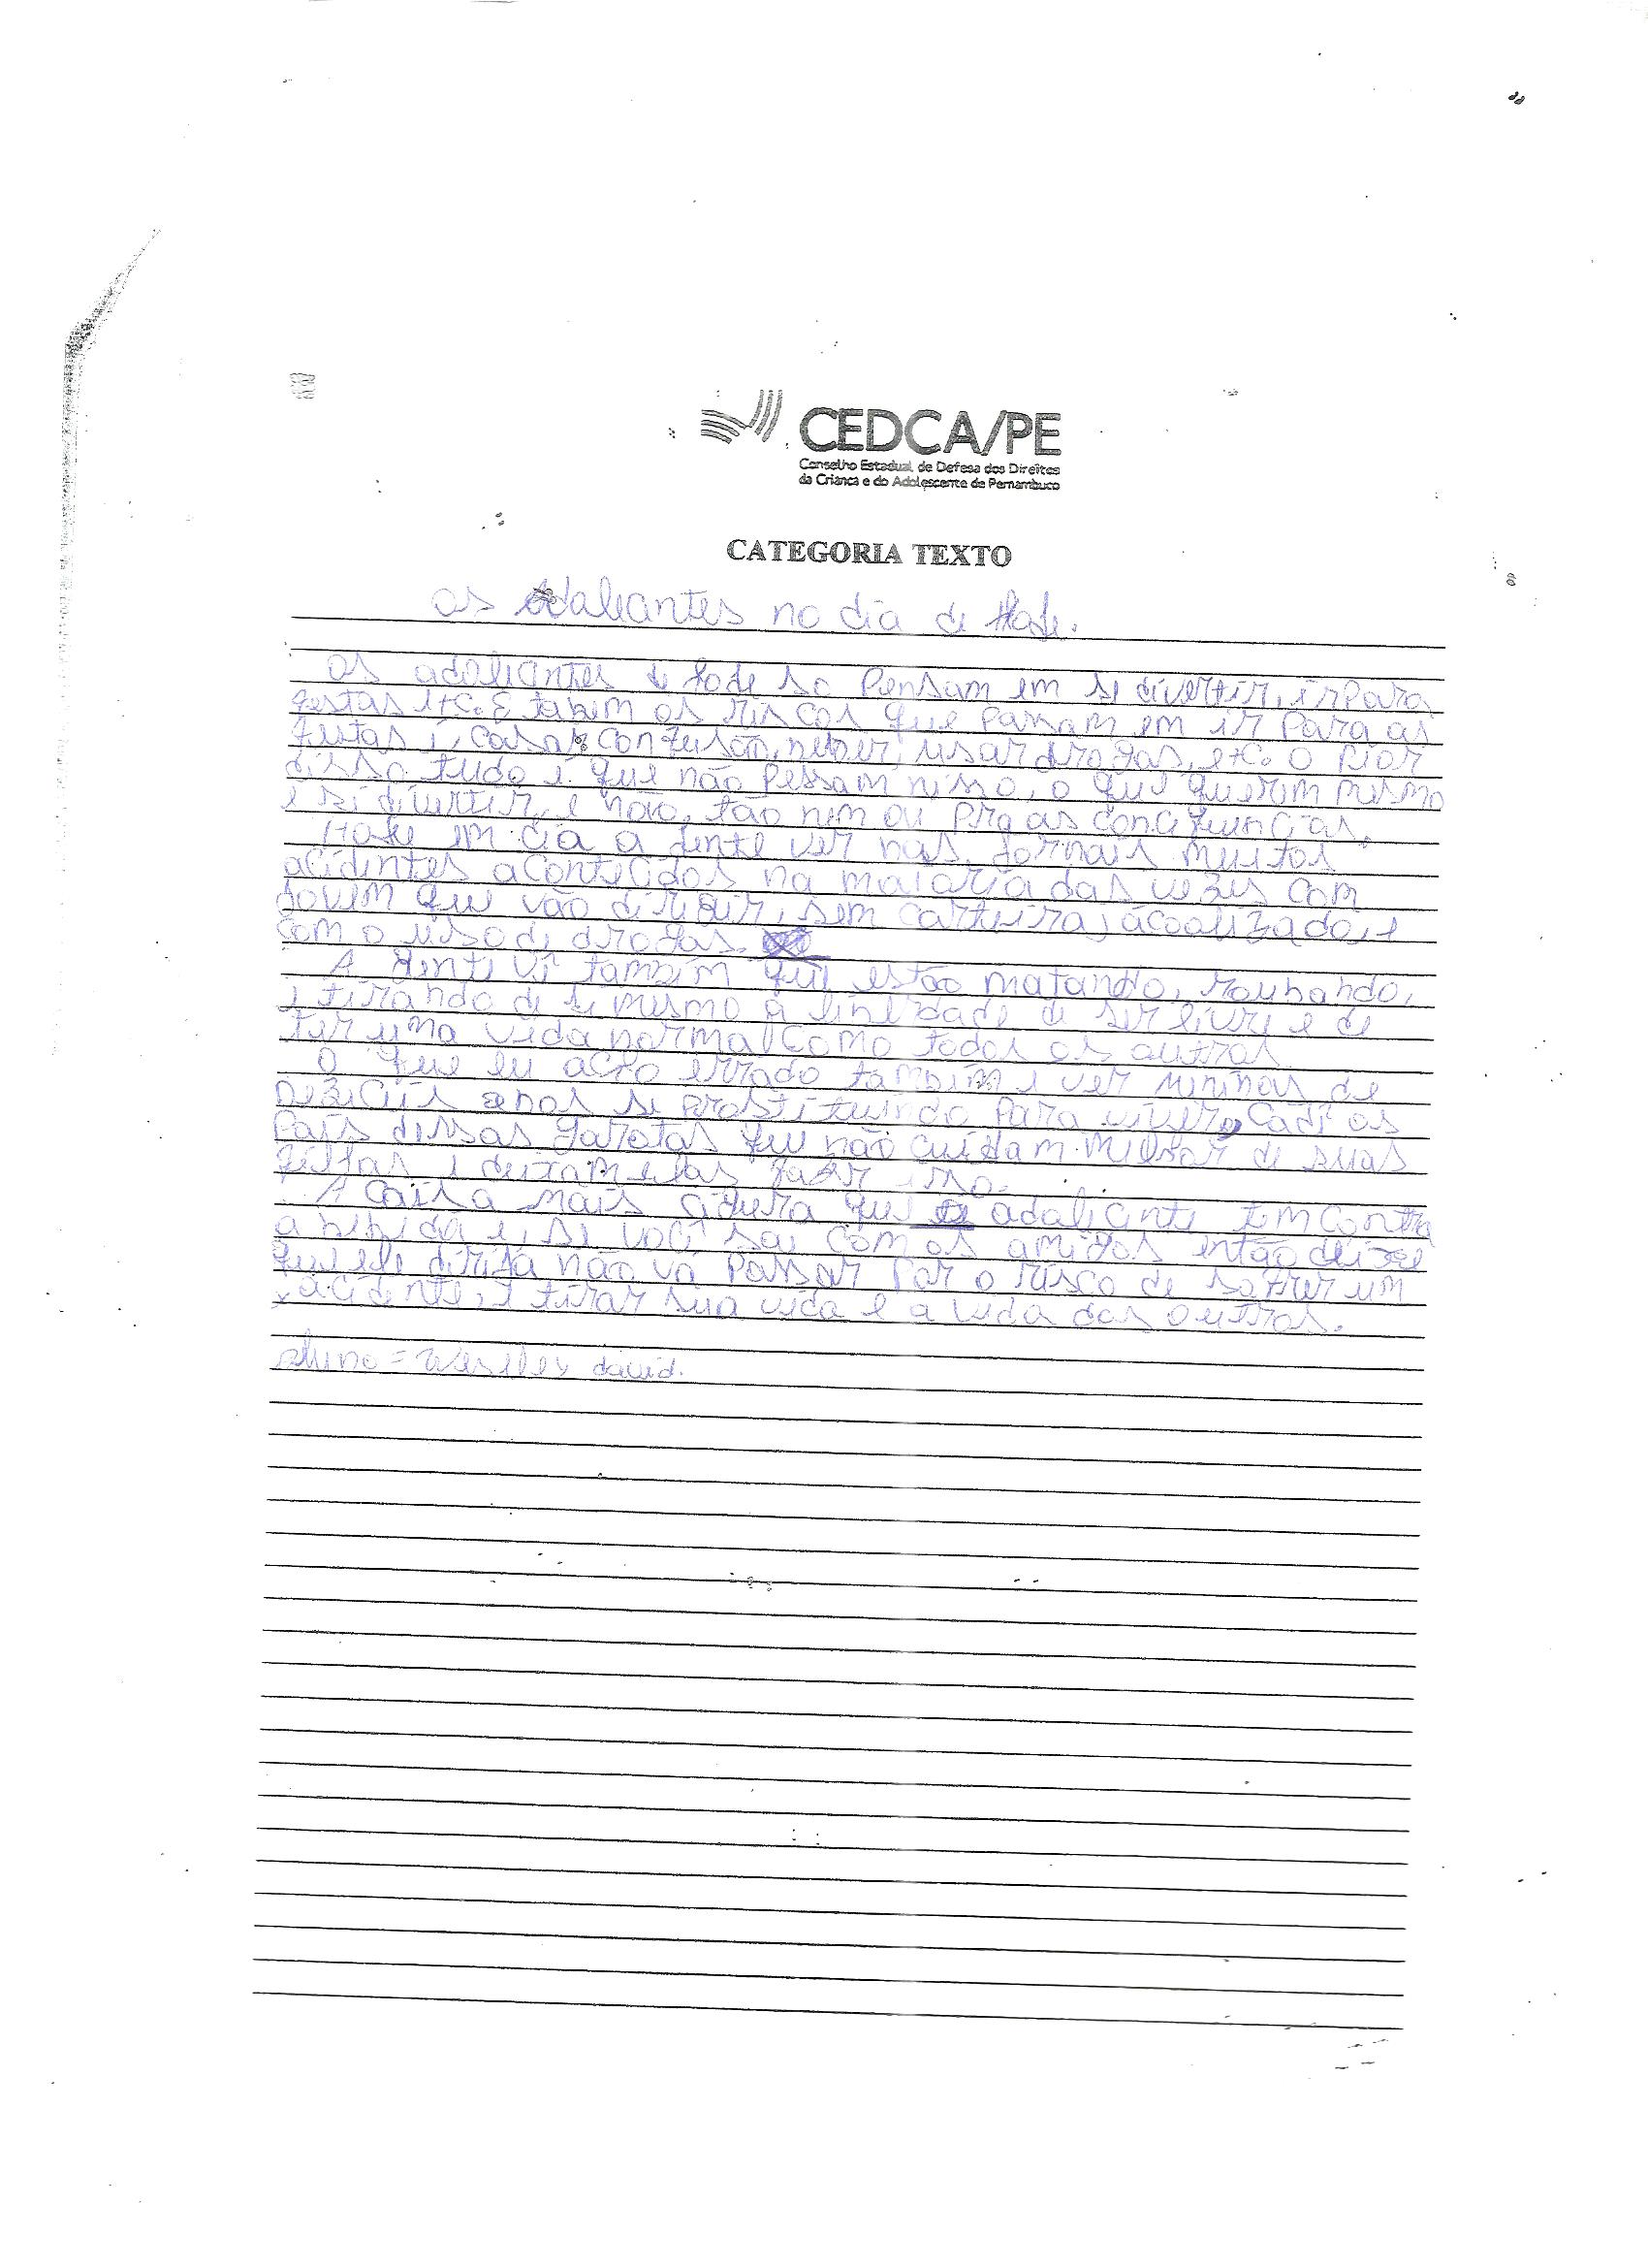 CEDCA/PE
Conselho Estadual de Defesa dos Direitos
da Criança e do Adolescente de Pernambuco
CATEGORIA TEXTO
os adaleantes no dia de Hoje.
os adoleantes de hoje so Pensam em se divertir, ir para
festas etc. E fazem os riscos que passam em ir para as
festas é, casar confusão, beber, usar drogas, etc. O Pior
disso tudo é que não Pessam nisso, o que querem mesmo
e si divertir, e não, tão nem ou pra as
Hoje em dia a jente ver nas jornais muitos
acidentes acontecidos na maioria das vezes com
jovem que vão dirigir, sem carteira, acoalizado, e
com o uso de drogas.
A jente vê também que estão matando, roubando,
e tirando de si mesmo a liberdade de ser livre e de
ter uma vida normal como todos os outros
O que eu acho errado também e ver meninas de
anos se prostituindo para viver, Cadê os
Pais dessas garotas que não cuidam melhor de suas
filhas e deixam elas fazer isso.
A coisa mais que adalicente tem contra
a bebida e, se você sai com os amigos então deixe
que ele dirija não va Passar Por o risco de sofrer um
acidente, e tirar sua vida e a vida das outras.
aluno = Weslley david.